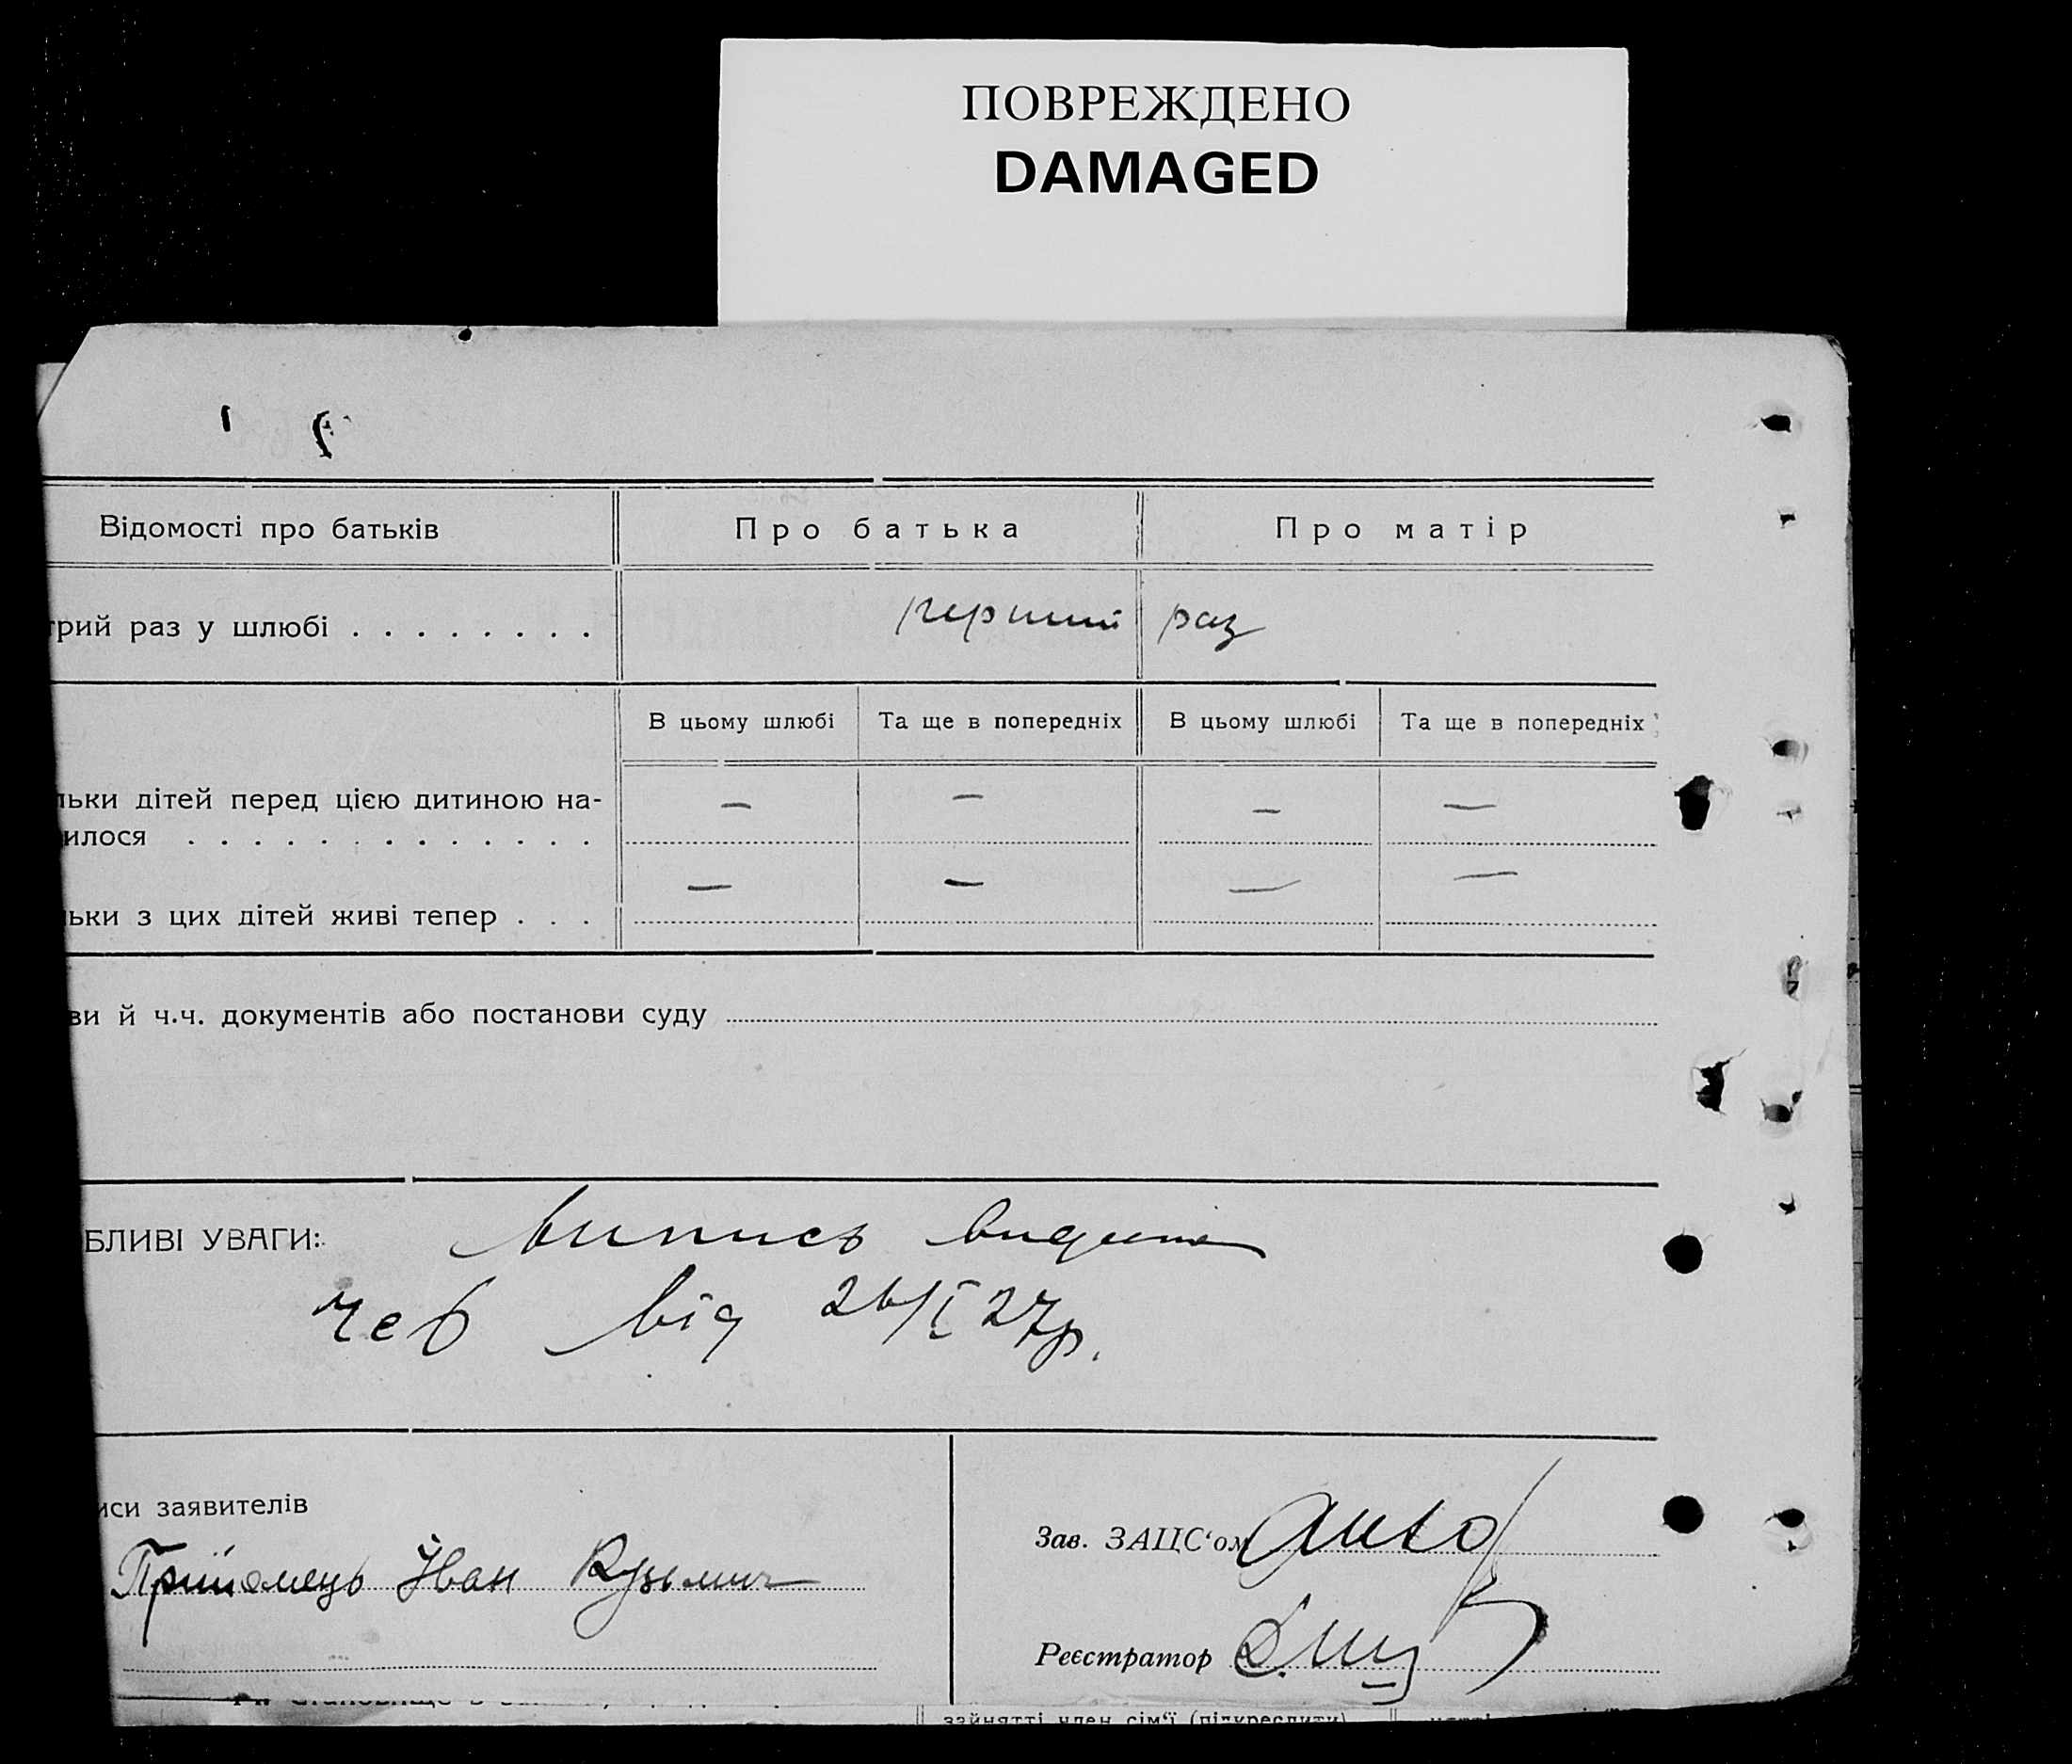 ПОВРЕЖДЕНО
DAMAGED
Відомості про батьків
Про батька
Про матір
трий раз у шлюбі . . . . . . . .
перший раз
В цьому шлюбі
Та ще в попередніх
В цьому шлюбі
Та ще в попередніх
льки дітей перед цією дитиною на-
— — — —
илося . . . . . . . . . . . . .
— — — —
льки з цих дітей живі тепер . . .
ви й ч.ч. документів або постанови суду
БЛИВІ УВАГИ: Випись видана
від 26/I 27р.
иси заявителів
Прийомець Іван Кузьмич
Зав. ЗАЦС‘ом
Реєстратор
зайнятті член сім‘ї (підкреслити)